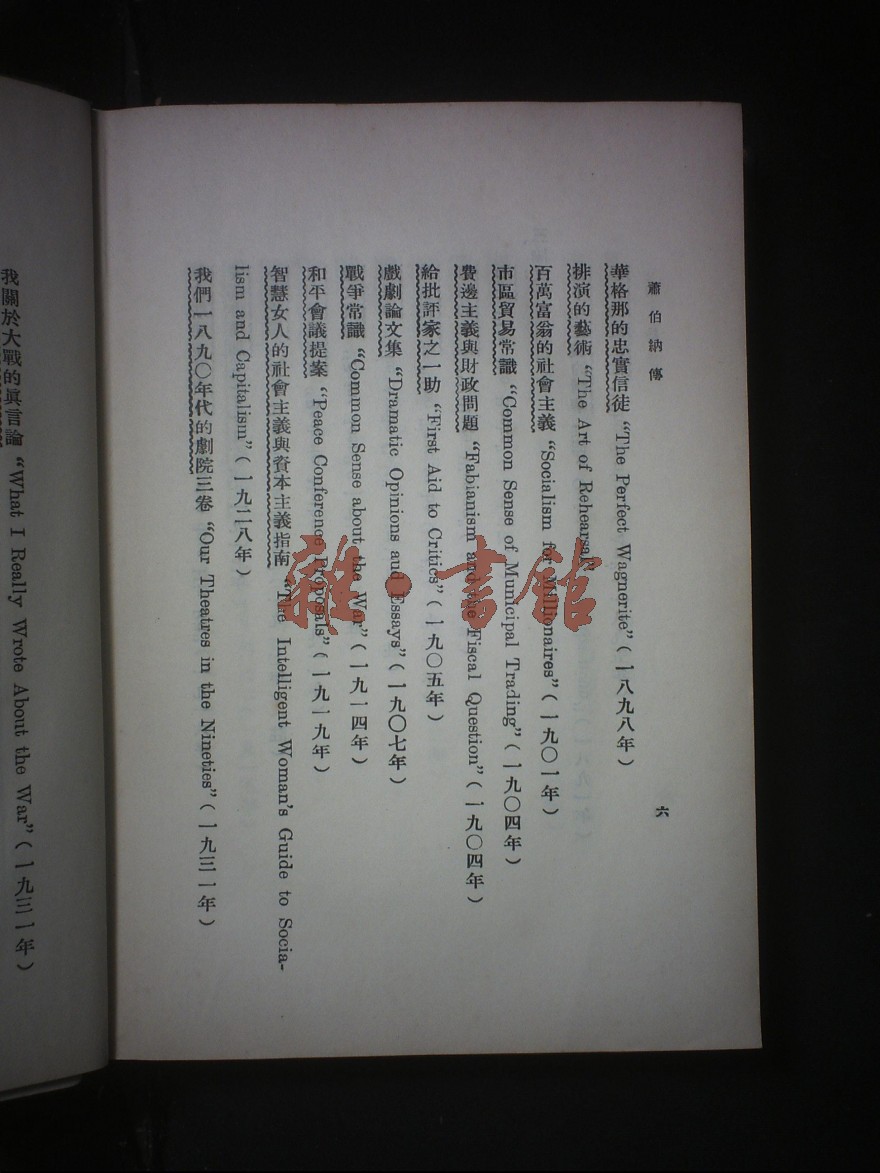 蕭伯納傳
六
華格那的忠實信徒 “The Perfect Wagnerite”(一八九八年)
排演的藝術 “The Art of Rehearsal”
百萬富翁的社會主義 “Socialism for Millionaires”(一九〇一年)
市區貿易常識 “Common Sense of Municipal Trading”(一九〇四年)
費邊主義與財政問題 “Fabianism and the Fiscal Question”(一九〇四年)
給批評家之一助 “First Aid to Critics”(一九〇五年)
戲劇論文集 “Dramatic Opinions and Essays”(一九〇七年)
戰爭常識 “Common Sense about the War”(一九一四年)
和平會議提案 “Peace Conference Proposals”(一九一九年)
智慧女人的社會主義與資本主義指南 “The Intelligent Woman's Guide to Socia-
lism and Capitalism”(一九二八年)
我們一八九〇年代的劇院三卷 “Our Theatres in the Nineties”(一九三一年)
我關於大戰的眞言論 “What I Really Wrote About the War”(一九三一年)
雜·書館